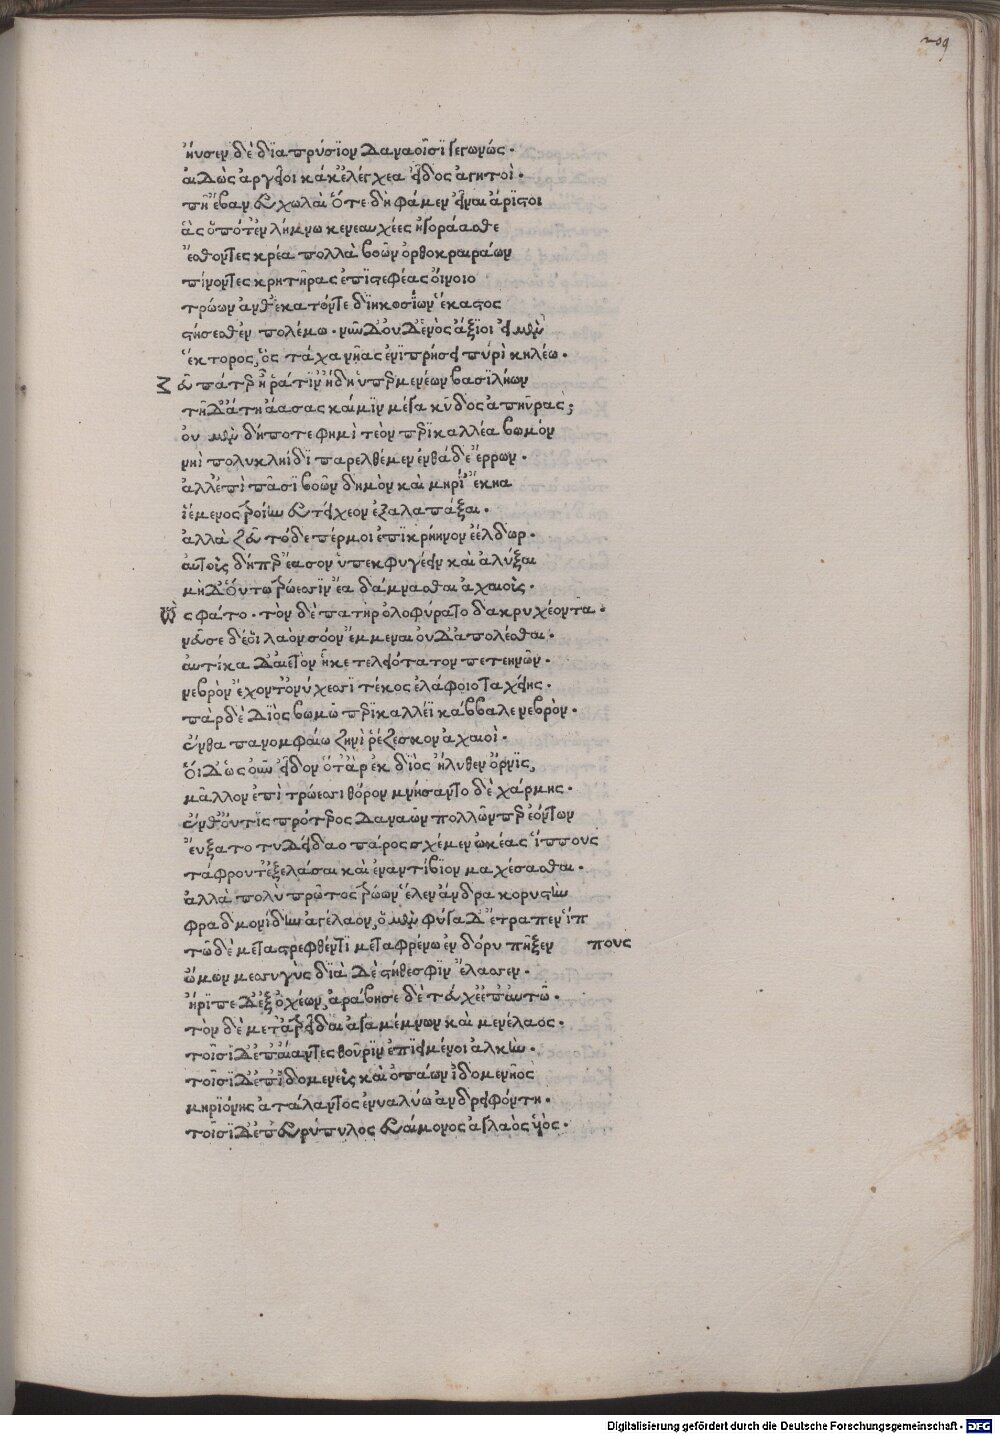 209
ἤυσεν δὲ διαπρύσιον Δαναοῖσι γεγωνώς.
αἰδὼς ἀργεῖοι κάκ' ἐλέγχεα εἶδος ἀγητοὶ.
πῆ ἔβαν εὐχωλαὶ ὅτε δὴ φάμεν εἶναι ἄριστοι
ἃς ὁπότ' ἐν λήμνω κενεαυχέες ἠγοράασθε
ἔσθοντες κρέα πολλὰ βοῶν ὀρθοκραιράων
πίνοντες κρητῆρας ἐπιστεφέας οἴνοιο
τρώων ἄνθ' ἑκατόν τε διηκοσίων ἕκαστος
στήσεσθ' ἐν πολέμω. νῦν δ' οὐδ' ἑνὸς ἄξιοι εἰμὲν
ἕκτορος, ὃς τάχα νῆας ἐνιπρήσει πυρὶ κηλέω.
Ζεῦ πάτερ ἦ ῥά τιν' ἤδη ὑπερμενέων βασιλήων
τῆδ' ἄτη ἄασας καί μιν μέγα κῦδος ἀπηύρας;
οὐ μὲν δήποτε φημὶ τεὸν περικαλλέα βωμόν
νηῒ πολυκληίδι παρελθέμεν ἐνθάδε ἔρρων.
ἀλλ' ἐπὶ πᾶσι βοῶν δημὸν καὶ μηρί' ἔκηα
ἱέμενος τροίην εὐτείχεον ἐξαλαπάξαι.
ἀλλὰ ζεῦ τόδε πέρ μοι ἐπικρήηνον ἐέλδωρ.
αὐτοὺς δήπερ ἔασον ὑπεκφυγέειν καὶ ἀλύξαι
μηδ' οὕτω τρώεσσιν ἔα δάμνασθαι ἀχαιοὶς.
Ὣς φάτο. τὸν δὲ πατὴρ ὀλοφύρατο δακρυχέοντα.
νεῦσε δέ οἱ λαὸν σόον ἔμμεναι οὐδ' ἀπολέσθαι.
αὐτίκα δ' αἰετὸν ἧκε τελειότατον πετεηνῶν.
νεβρὸν ἔχοντ' ὀνύχεσσι τέκος ἐλάφοιο ταχείης.
πὰρ δὲ Διὸς βωμῶ περικαλλέϊ κάββαλε νεβρὸν.
ἔνθα πανομφαίω ζηνὶ ῥέζεσκον ἀχαιοὶ.
Οἱ δ' ὡς οὖν εἶδον ὅτ' ἄρ ἐκ διὸς ἤλυθεν ὄρνις,
μᾶλλον ἐπὶ τρώεσσι θόρον μνήσαντο δὲ χάρμης.
ἔνθ' οὔτις πρότερος Δαναῶν πολλῶν περ ἐόντων
εὔξατο τυδείδαο πάρος σχέμεν ὠκέας ἵππους
τάφρου τ' ἐξελάσαι καὶ ἐναντίβιον μαχέσασθαι.
ἀλλὰ πολὺ πρῶτος τρώων ἕλεν ἄνδρα κορυστὴν
φραδμονίδην ἀγέλαον, ὁ μὲν φύγαδ' ἔτραπεν ἵπ
τῶ δὲ μεταστρεφθέντι μεταφρένω ἐν δόρυ πῆξεν πους
ὤμων μεσσηγὺς διὰ δὲ στήθεσφιν ἔλασσεν.
ἤριπε δ' ἐξ ὀχέων, ἀράβησε δὲ τεύχε' ἐπ' αὐτῶ.
τὸν δὲ μετ' ἀτρείδαι ἀγαμέμνων καὶ μενέλαος.
τοῖσι δ' ἐπ' αἴαντες θοῦριν ἐπιειμένοι ἀλκὴν.
τοῖσι δ' ἐπ' ἰδομενεὶς καὶ ὀπάων ἰδομενῆος
μηριόνης ἀτάλαντος ἐνυαλίω ἀνδρειφόντη.
τοῖσι δ' ἐπ' εὐρύπυλος εὐαίμονος ἀγλαὸς υἱὸς.
Digitalisierung gefördert durch die Deutsche Forschungsgemeinschaft - DFG